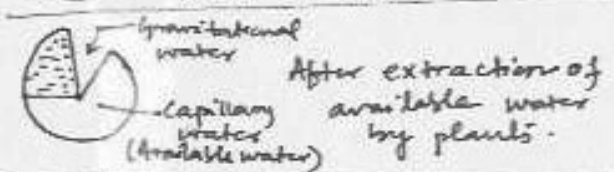 Gravitational
water
Capillary
water
(Available water)
After extraction of
available water
by plants.